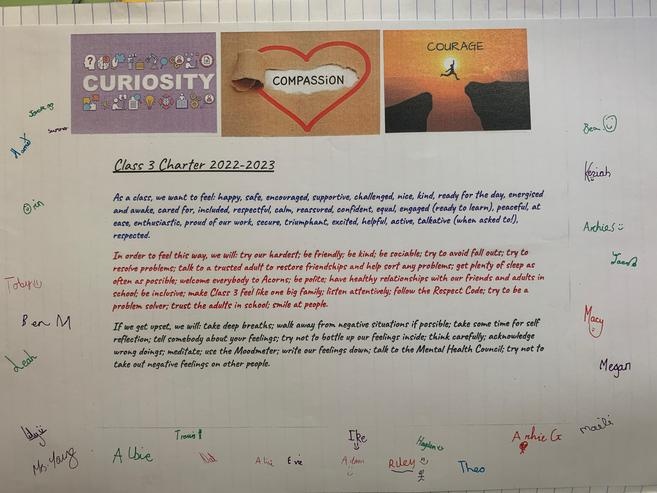 CURIOSITY
COMPASSION
COURAGE
Class 3 Charter 2022-2023
As a class, we want to feel: happy, safe, encouraged, supportive, challenged, nice, kind, ready for the day, energised
and awake, cared for, included, respectful, calm, reassured, confident, equal, engaged (ready to learn), peaceful, at
ease, enthusiastic, proud of our work, secure, triumphant, excited, helpful, active, talkative (when asked to!),
respected.
In order to feel this way, we will: try our hardest; be friendly; be kind; be sociable; try to avoid fall outs; try to
resolve problems; talk to a trusted adult to restore friendships and help sort any problems; get plenty of sleep as
often as possible; welcome everybody to Acorns; be polite; have healthy relationships with our friends and adults in
school; be inclusive; make Class 3 feel like one big family; listen attentively; follow the Respect Code; try to be a
problem solver; trust the adults in school; smile at people.
If we get upset, we will: take deep breaths; walk away from negative situations if possible; take some time for self
reflection; tell somebody about your feelings; try not to bottle up our feelings inside; think carefully; acknowledge
wrong doings; meditate; use the Moodmeter; write our feelings down; talk to the Mental Health Council; try not to
take out negative feelings on other people.
Jack
Toby
Ben M
Leah
Ms. Young
Albie
Travis
Eve
Ike
Adam
Riley
Hayden
Theo
Archie G
Maili
Megan
Macy
Archie S
Keziah
Ben